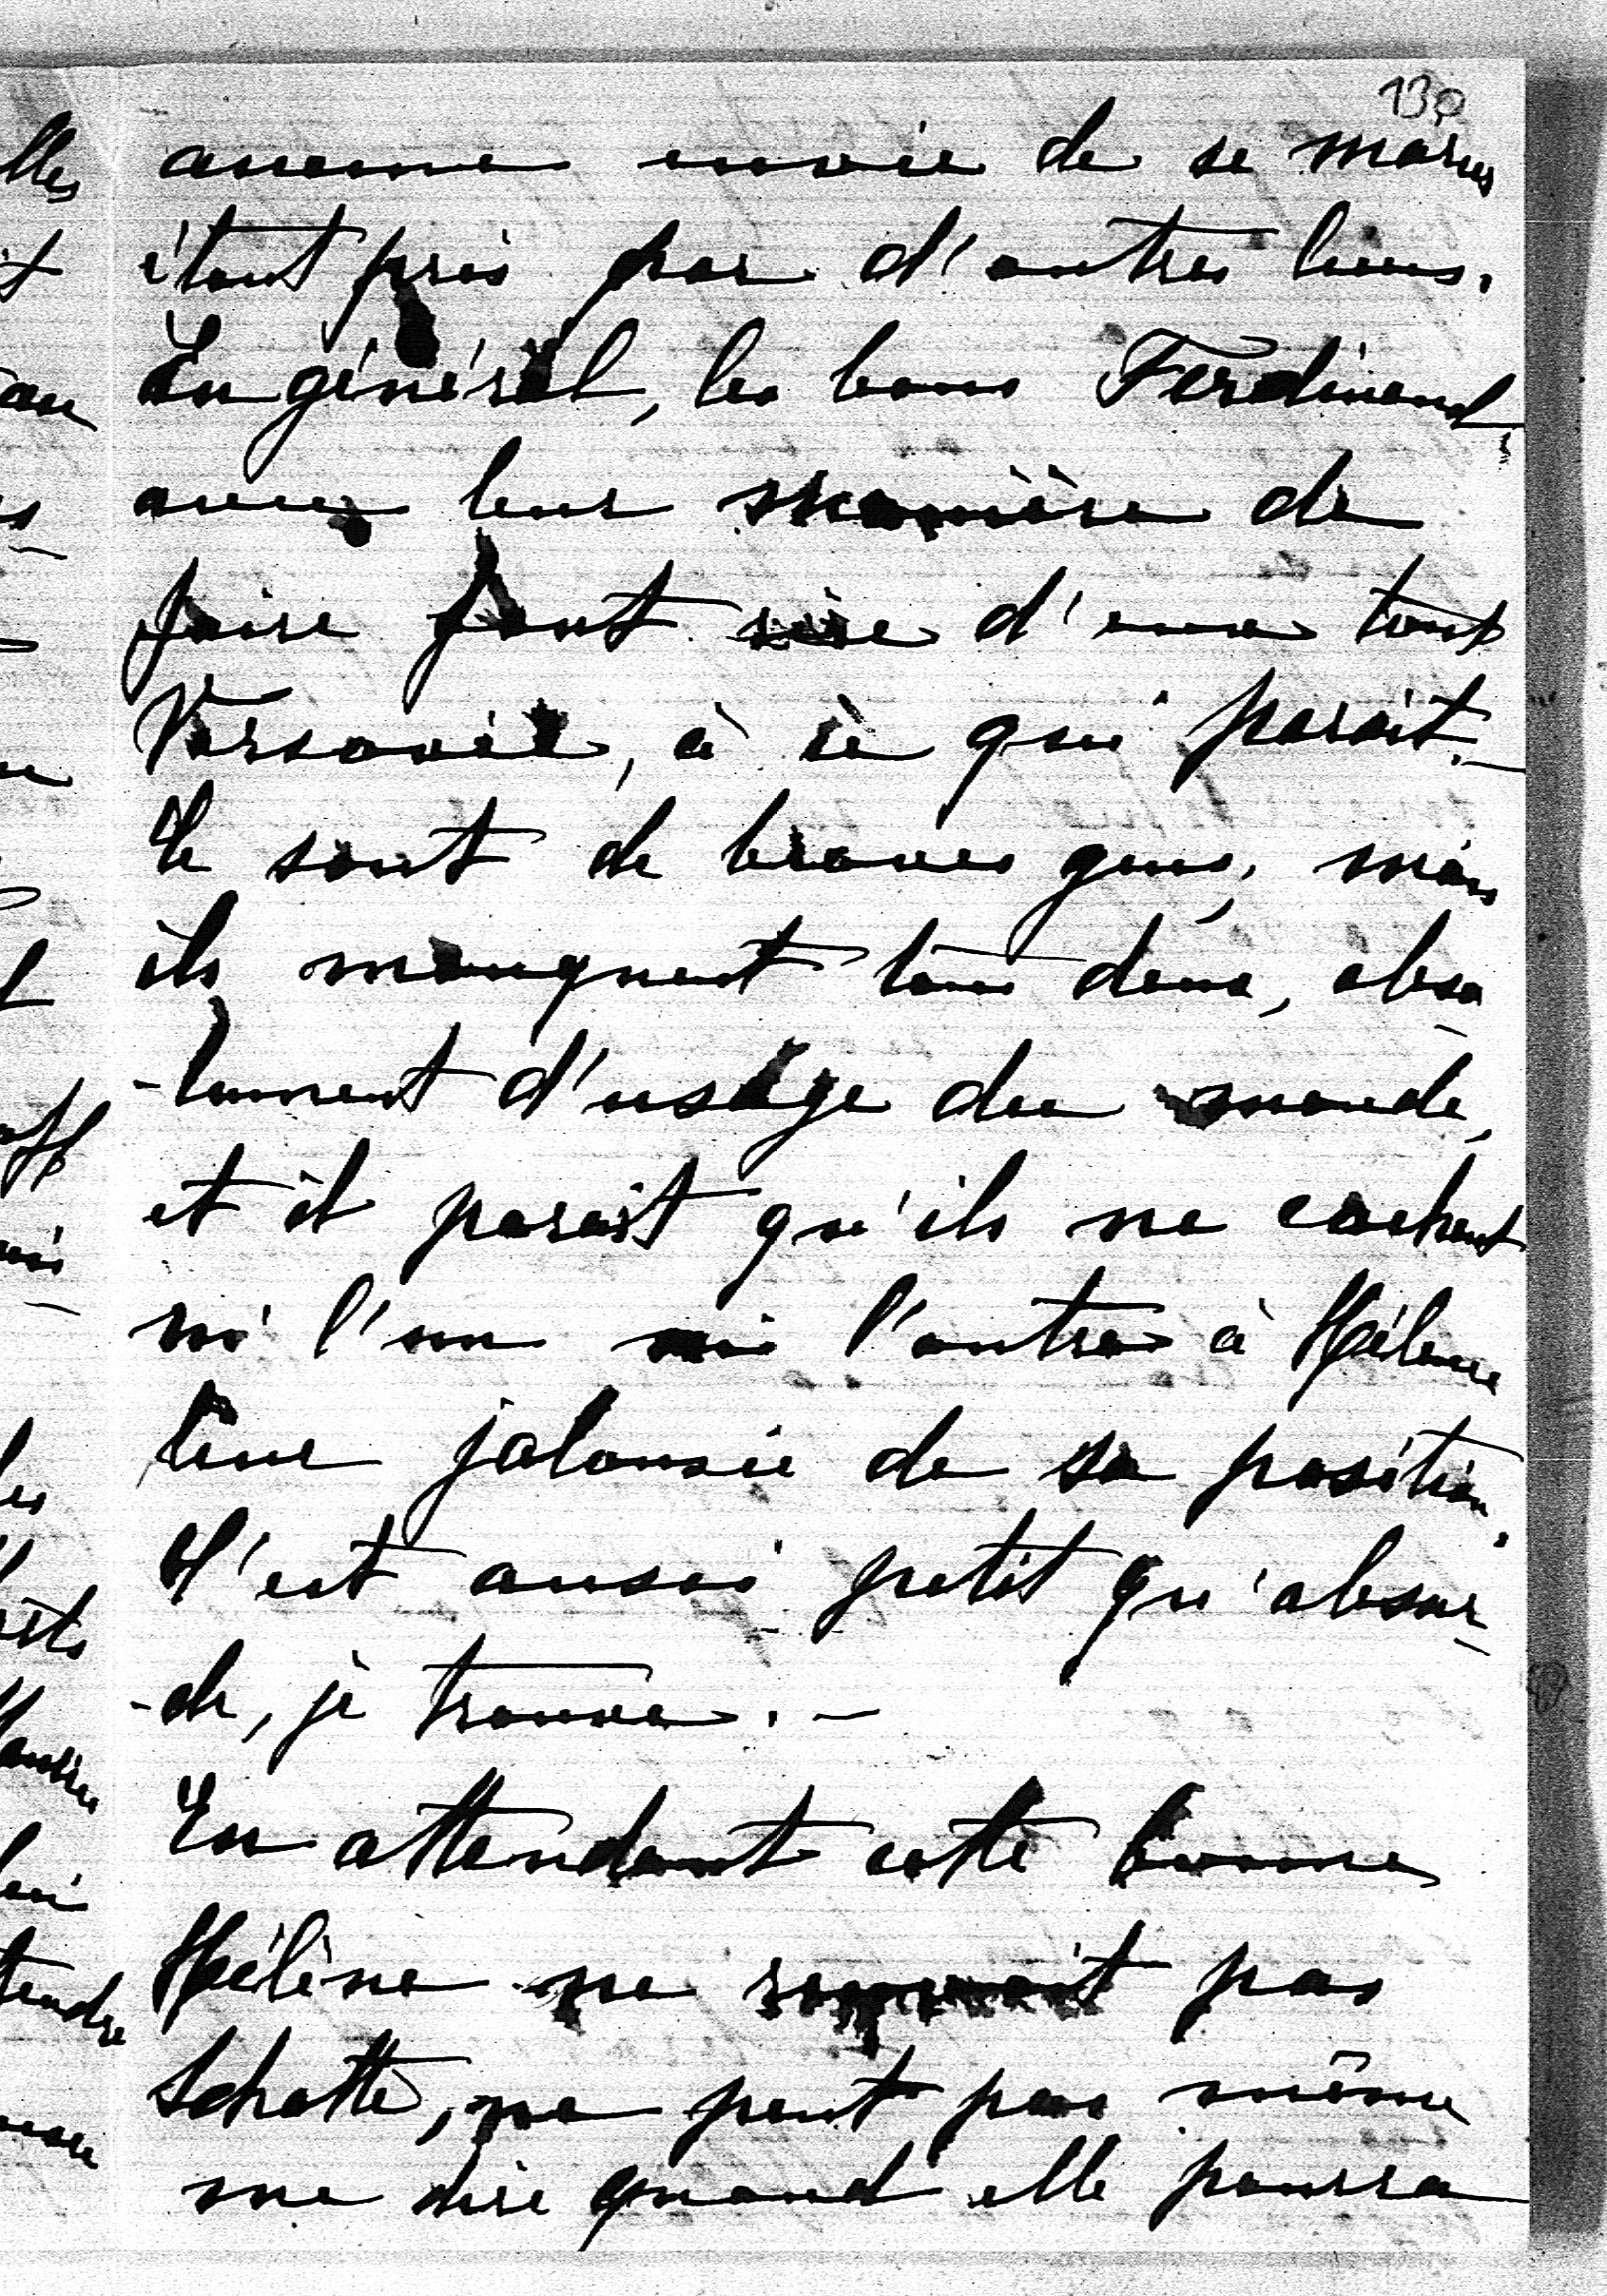 130
aucune envie de se marier
étant pris par d'autres liens.
En général, les bons Ferdinand,
avec leur manière de
faire font rire d'eux tout
Varsovie, à ce qui parait. —
Ce sont de braves gens, mais
ils manquent tous deux, abso
-lument d'usage du monde,
et il parait qu'ils ne cachent
ni l'un ni l'autre à Hélène
leur jalousie de sa position.
C'est aussi petit qu'absur-
-de, je trouve. —
En attendant cette bonne
Hélène ne pas
Schatte, ne peut pas même
me dire quand elle pourra